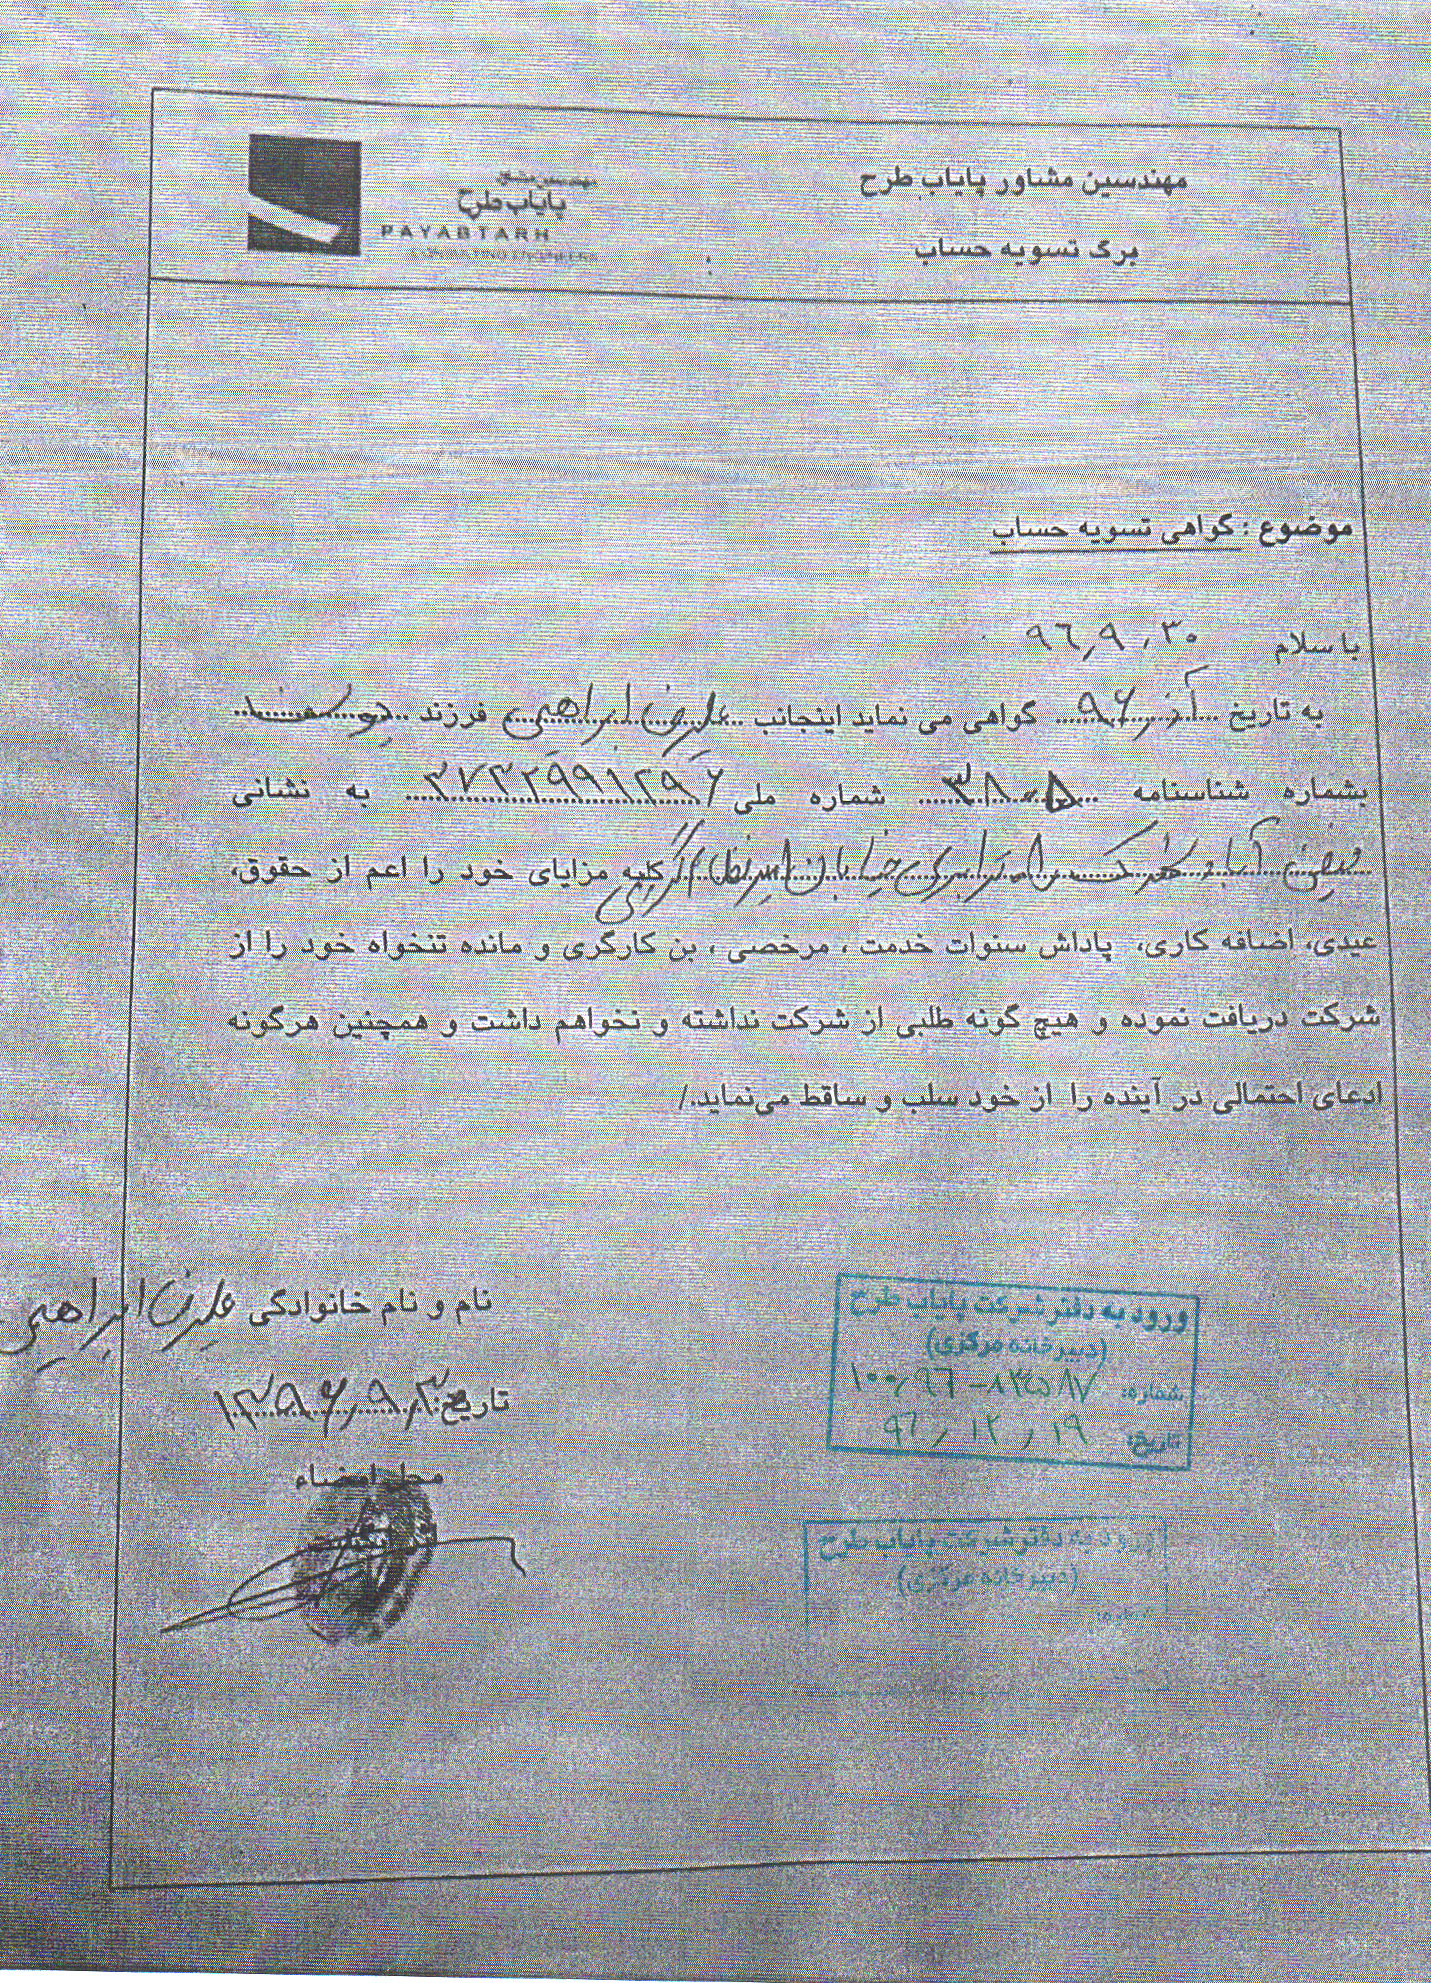 مهندسین مشاور پایاب طرح
برگ تسویه حساب
مهندسین مشاور
پایاب طرح
PAYABTARH
موضوع : گواهی تسویه حساب
با سلام ۹۶٫۹٫۳۰
به تاریخ آذر ۹۶ گواهی می نماید اینجانب علیرضا ابراهیمی فرزند
بشماره شناسنامه ۳۸۰۵ شماره ملی ۳۷۳۲۹۹۱۲۹۶ به نشانی
خیابان کلیه مزایای خود را اعم از حقوق،
عیدی، اضافه کاری، پاداش سنوات خدمت ، مرخصی ، بن کارگری و مانده تنخواه خود را از
شرکت دریافت نموده و هیچ گونه طلبی از شرکت نداشته و نخواهم داشت و همچنین هرگونه
ادعای احتمالی در آینده را از خود سلب و ساقط می‌نماید./
نام و نام خانوادگی علیرضا ابراهیمی
تاریخ: ۱۳۹۶٫۹٫۳۰
محل امضاء
ورود به دفتر شرکت پایاب طرح
(دبیرخانه مرکزی)
شماره:
تاریخ: ۹۶٫۱۲٫۱۹
ورود به دفتر شرکت پایاب طرح
(دبیرخانه مرکزی)